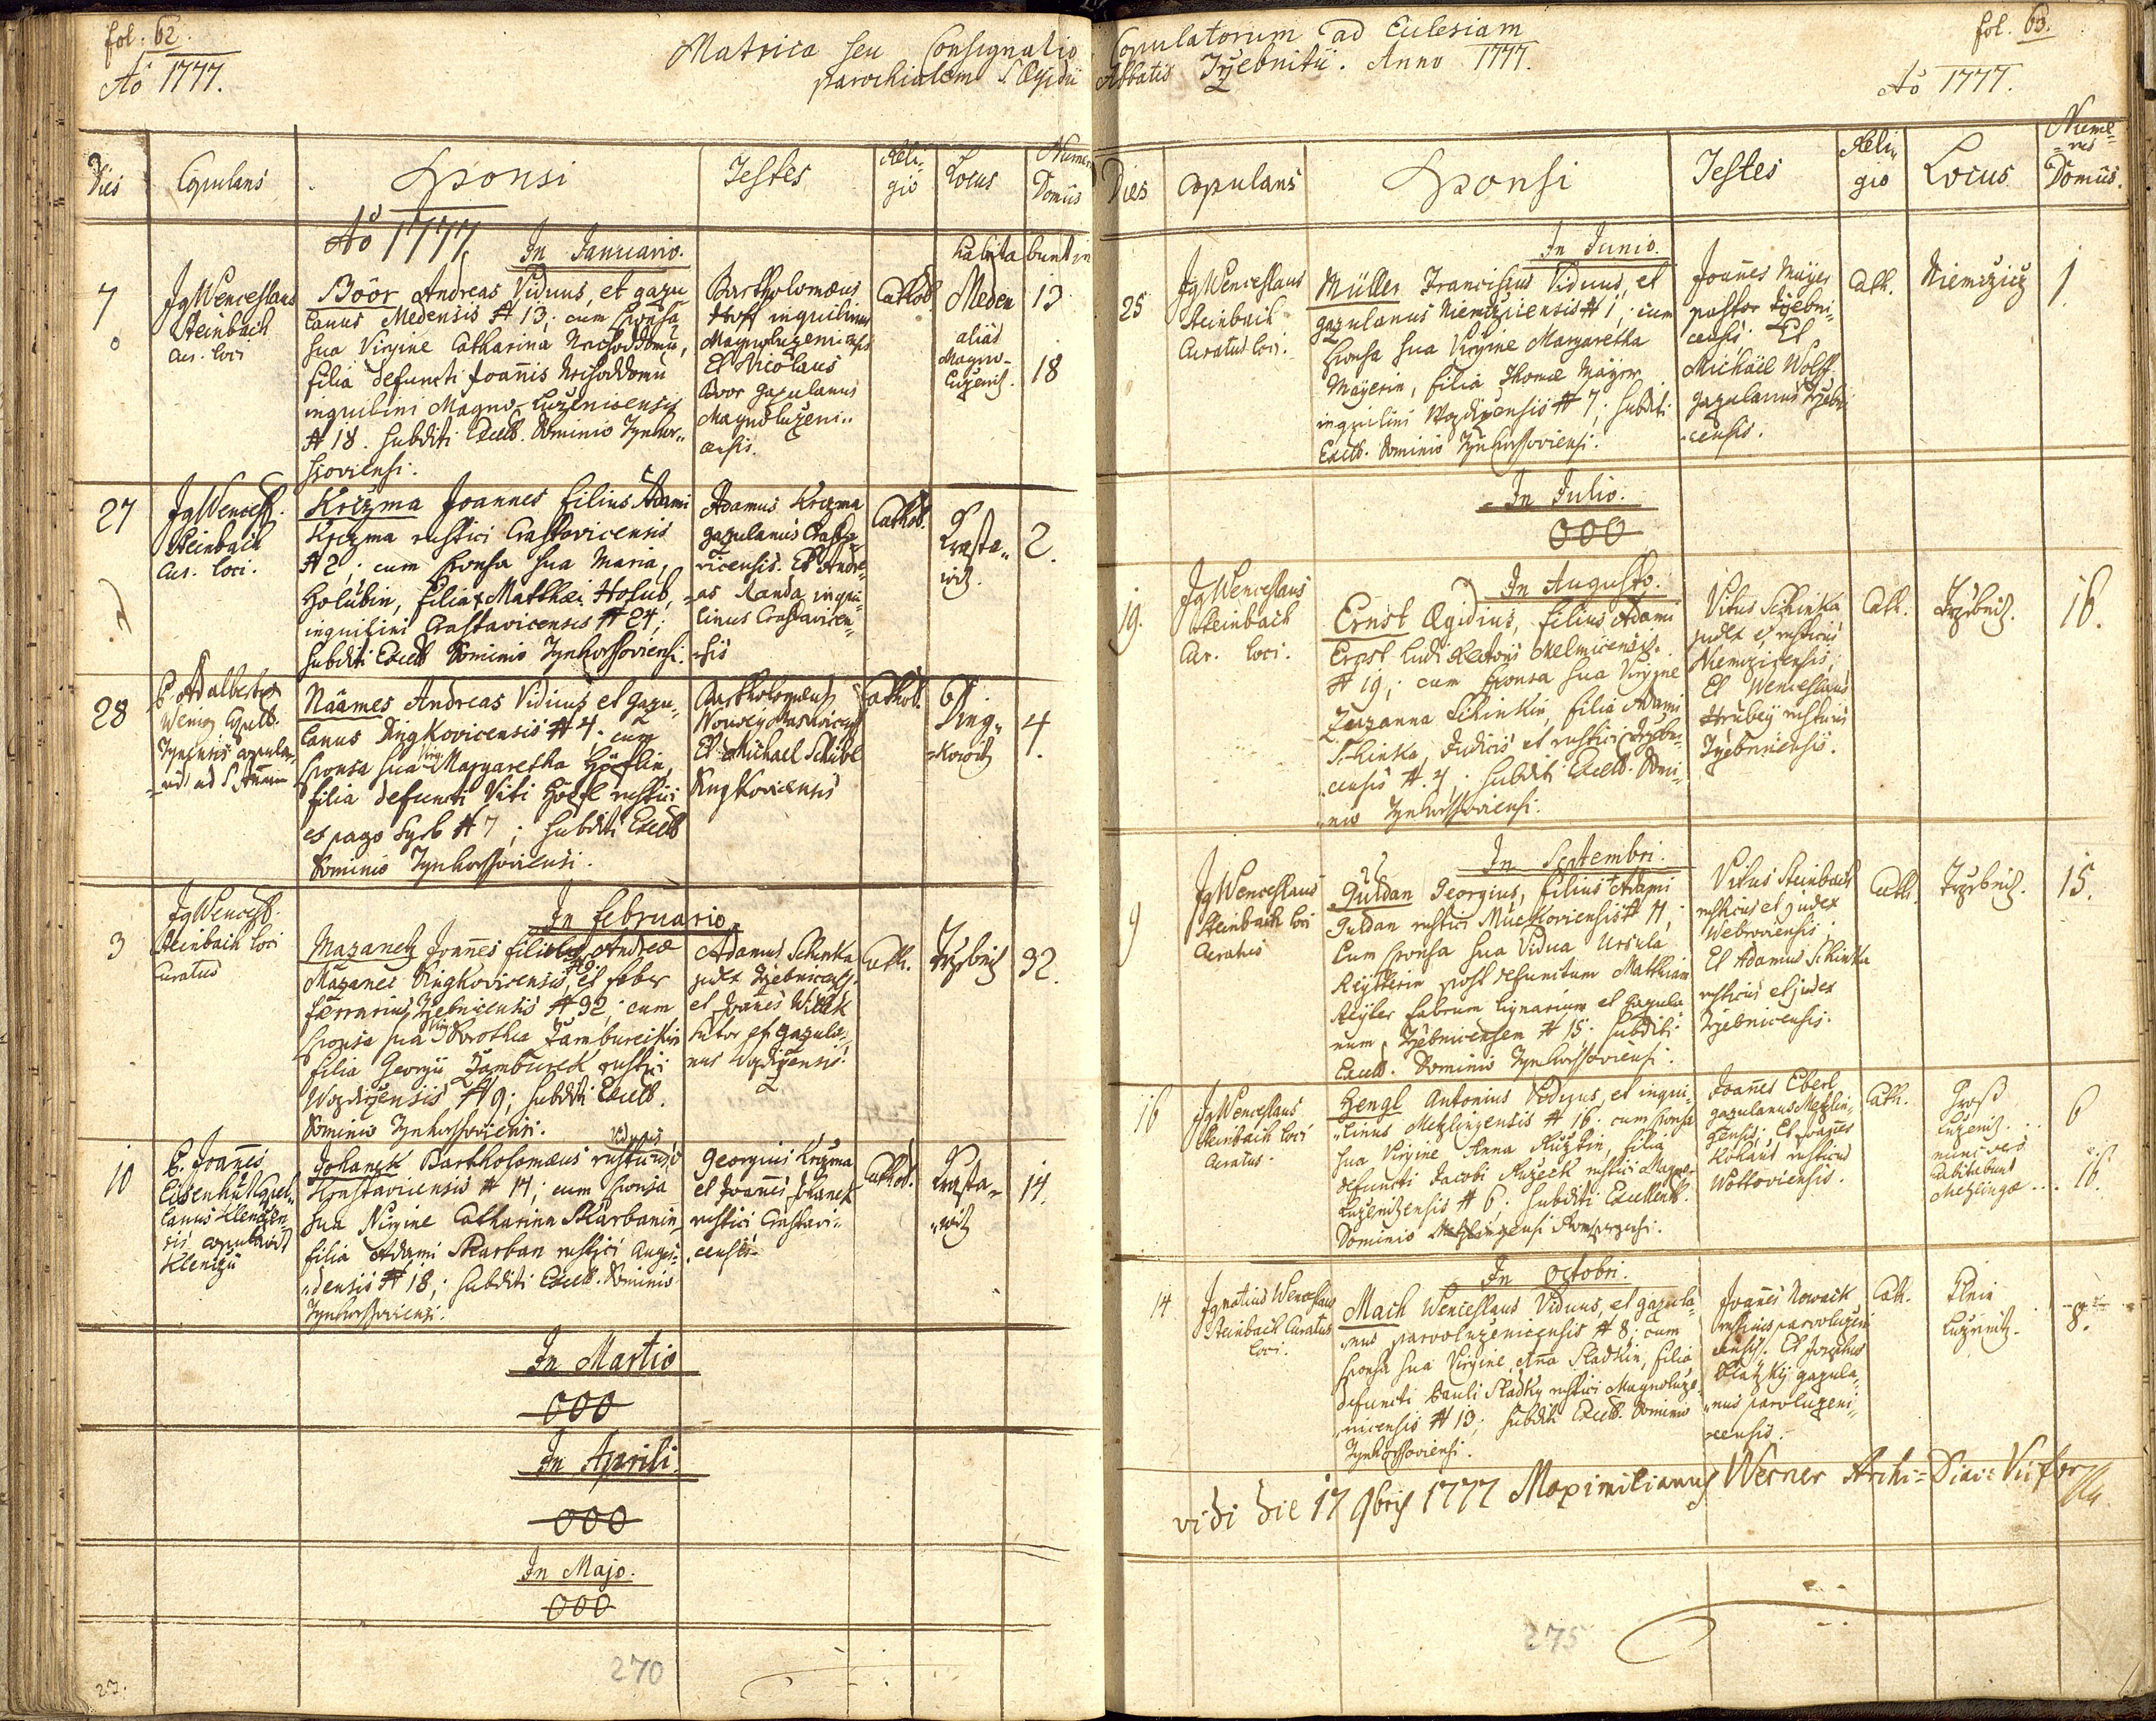 fol. 62.
Aõ 1777.
Matrica seu Consignatio
parochialem S. Ægidii
Dies
Copulans
Sponsi
Testes
Reli-
gio
Locus
Numer
Domûs
Aõ 1777
In Januario.
habita bunt in
7
Jg Wenceslaus
Steinbach
Cur. loci
Bôor Andreas Viduus, et gazu
lanus Medensis # 13; cum sponsa
sua Virgine Catharina
filia defuncti Joannis
inquilini Magno-Luzenicensis
# 18. subditi Excell. Dominio Tynhor-
schoviensi.
Bartholomæus
inquilinus
Magnoluzenicensis
Et Nicolaus
Boor gazulanus
Magnoluzeni-
censis.
Cathol.
Meden
aliàs
Magno-
Luzenich.
13
18
27
Jg Wencesl.
Steinbach
Cur. loci.
Krizma Joannes filius Adami
Krizma rustici Crastavicensis
# 2; cum sponsa sua Maria,
Holubin, filia Matthæi Holub,
inquilini Crastavicensis # 24;
subditi Excell. Dominio Tynhorssoviensi.
Adamus Krizma
gazulanus Crasta-
vicensis. Et Andre-
as Randa inqui-
linus Crastavicen-
sis
Cathol.
Krasta-
witz.
2.
28
P. Adalbertus
Wenig Capell.
Tynensis copula-
vit ad S. Annam
Naämes Andreas Viduus et Gazu-
lanus Ringkovicensis # 4. cum
sponsa sua Virg. Margaretha Höflin,
filia defuncti Viti Höfl rustici
ex pago Syrb # 7; subditi Excell
Dominio Tynhorssoviensi.
Bartholomæus
Et Michael Schübl
Ringkovicensis
Cathol.
Ring-
-kowitz
4
In Februario.
3
Jg Wencesl.
Steinbach loci
Curatus
Mazanetz Joannes filius Andreæ
Mazanec Ringkovicensis, et faber
ferrarius Trzebnicensis # 32; cum
sponsa sua Virg. Dorothea Tambureckin
filia Georgii Tamburek rustici
Wozdizensis # 9; subditi Excell.
Dominio Tynhorssoviensi.
Adamus Schinka
judex Trzebnicensis.
et Joannes Willek
sutor et gazula-
nus Wozdizensis.
Cath.
Trzebnitz
32.
10
P. Joannes
Eisenhut Capel-
lanus Klenczen-
sis copulavit
Klenczii
Johanek Bartholomæus Viduus rusticus
Krastavicensis # 14; cum sponsa
sua Virgine Catharina Skarbanin,
filia Adami Skarban rustici Augez-
densis # 18; subditi Excell. Dominio
Tynhorssoviensi.
Georgius Krizma
et Joannes Johanek
rustici Crastavi-
censes.
Cathol.
Krasta-
witz
14.
In Martio
000
In Aprili.
000
In Majo.
000
270
27.
fol. 63.
Copulatorum ad Eclesiam
Abbatis Trzebnitii. Anno 1777.
Aõ 1777.
Dies
Copulans
Sponsi
Testes
Reli-
gio
Locus
Nume-
-rus
Domûs.
In Junio.
25
Jg Wenceslaus
Steinbach
Curatus loci.
Müller Franciscus Viduus, et
gazulanus Niemczicensis # 1; cum
sponsa sua Virgine Margaretha
Mayerin, filia Thomæ Mayer
inquilini Wozdizensis # 7; subditi
Excell. Dominio Tynhorssoviensi.
Joannes Mayer
pastor Trzebni-
censis. Et
Michäel Wolff
gazulanus Trzebni
-censis.
Cath.
Niemczicz
1
In Julio.
000
In Augusto.
19.
Jg Wenceslaus
Steinbach
Cur. loci.
Ernst Ægidius, filius Adami
Ernst ludi Rectoris Melmicensis
# 19; cum sponsa sua Virgine
Zuzanna Schinkin, filia Adami
Schinka, Judicis et rustici Trzebni-
censis # 4; subditi Excell. Domi-
nio Tynhorssoviensi.
Vitus Schinka
judex et rusticus
Niemczicensis;
Et Wenceslaus
Hrubey rusticus
Trzebnicensis.
Cath.
Trzebnitz.
16.
In Septembri.
9
Jg Wenceslaus
Steinbach loci
Curatus
Guldan Georgius, filius Adami
Guldan rustici Mückoviensis # 4;
Cum sponsa sua Vidua Ursula
Reytterin post defunctum Matthiam
Reyter fabrum lignarium et gazula
num Trzebnicensem # 15. subditi
Excell. Dominio Tynhorssoviensi.
Vitus Steinbach
rusticus et judex
Webroviensis
Et Adamus Schinka
rusticus et judex
Trzebnicensis.
Cath.
Trzebnitz.
15.
16
Jg Wenceslaus
Steinbach loci
Curatus.
Hengl Antonius Viduus, et inqui-
linus Metzlingensis # 16. cum sponsa
sua Virgine Anna Ruzkin, filia
defuncti Jacobi Ruzeck rustici Magno-
Luzenitzensis # 6; subditi Excellent.
Dominio Metzlingensi
Joannes Eberl
gazulanus Metzlin-
gensis. Et Joannes
Kohaut rusticus
Wottoviensis.
Cath.
Groß
Luzenitz . . .
nunc vero
habitabunt
Metzlingæ . . .
6
16.
In Octobri.
14
Jgnatius Wenceslaus
Steinbach Curatus
loci.
Mach Wenceslaus Viduus, et gazula-
nus parvoluzenicensis # 8; cum
sponsa sua Virgine Anna Sladkin, filia
defuncti Pauli Sladky rustici Magnoluze-
nicensis # 13; subditi Excell. Dominio
Tynhorssoviensi.
Joannes Nowack
rusticus parvoluzeni
censis. Et Josephus
Blatzky gazula-
nus parvoluzeni-
censis.
Cath.
Klein
Luzenitz.
8.
vidi die 17 9bris 1777 Maximilianus Werner Archi-Diac: Vic for
275